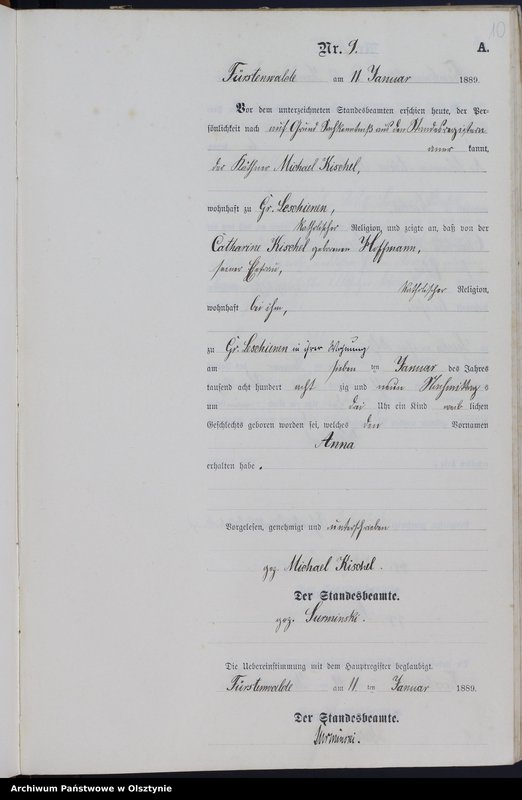 10
Nr. 9.
A.
Fürstenwalde am 11 Januar 1889.
Vor dem unterzeichneten Standesbeamten erschien heute, der Per-
sönlichkeit nach auf Grund Sachkenntniß aus den Standesregistern
kannt,
der Käthner Michael Kischel,
wohnhaft zu Gr. Leschienen,
katholischer Religion, und zeigte an, daß von der
Catharine Kischel geborenen Hoffmann,
seiner Ehefrau,
katholischer Religion,
wohnhaft bei ihm,
zu Gr. Leschienen in ihrer Wohnung
am sieben ten Januar des Jahres
tausend acht hundert acht zig und neun Nachmittags
um drei Uhr ein Kind weib lichen
Geschlechts geboren worden sei, welches den Vornamen
Anna
erhalten habe.
Vorgelesen, genehmigt und unterschrieben
gez. Michael Kischel.
Der Standesbeamte.
gez. Surminski.
Die Uebereinstimmung mit dem Hauptregister beglaubigt.
Fürstenwalde am 11 ten Januar 1889.
Der Standesbeamte.
Surminski.
Archiwum Państwowe w Olsztynie